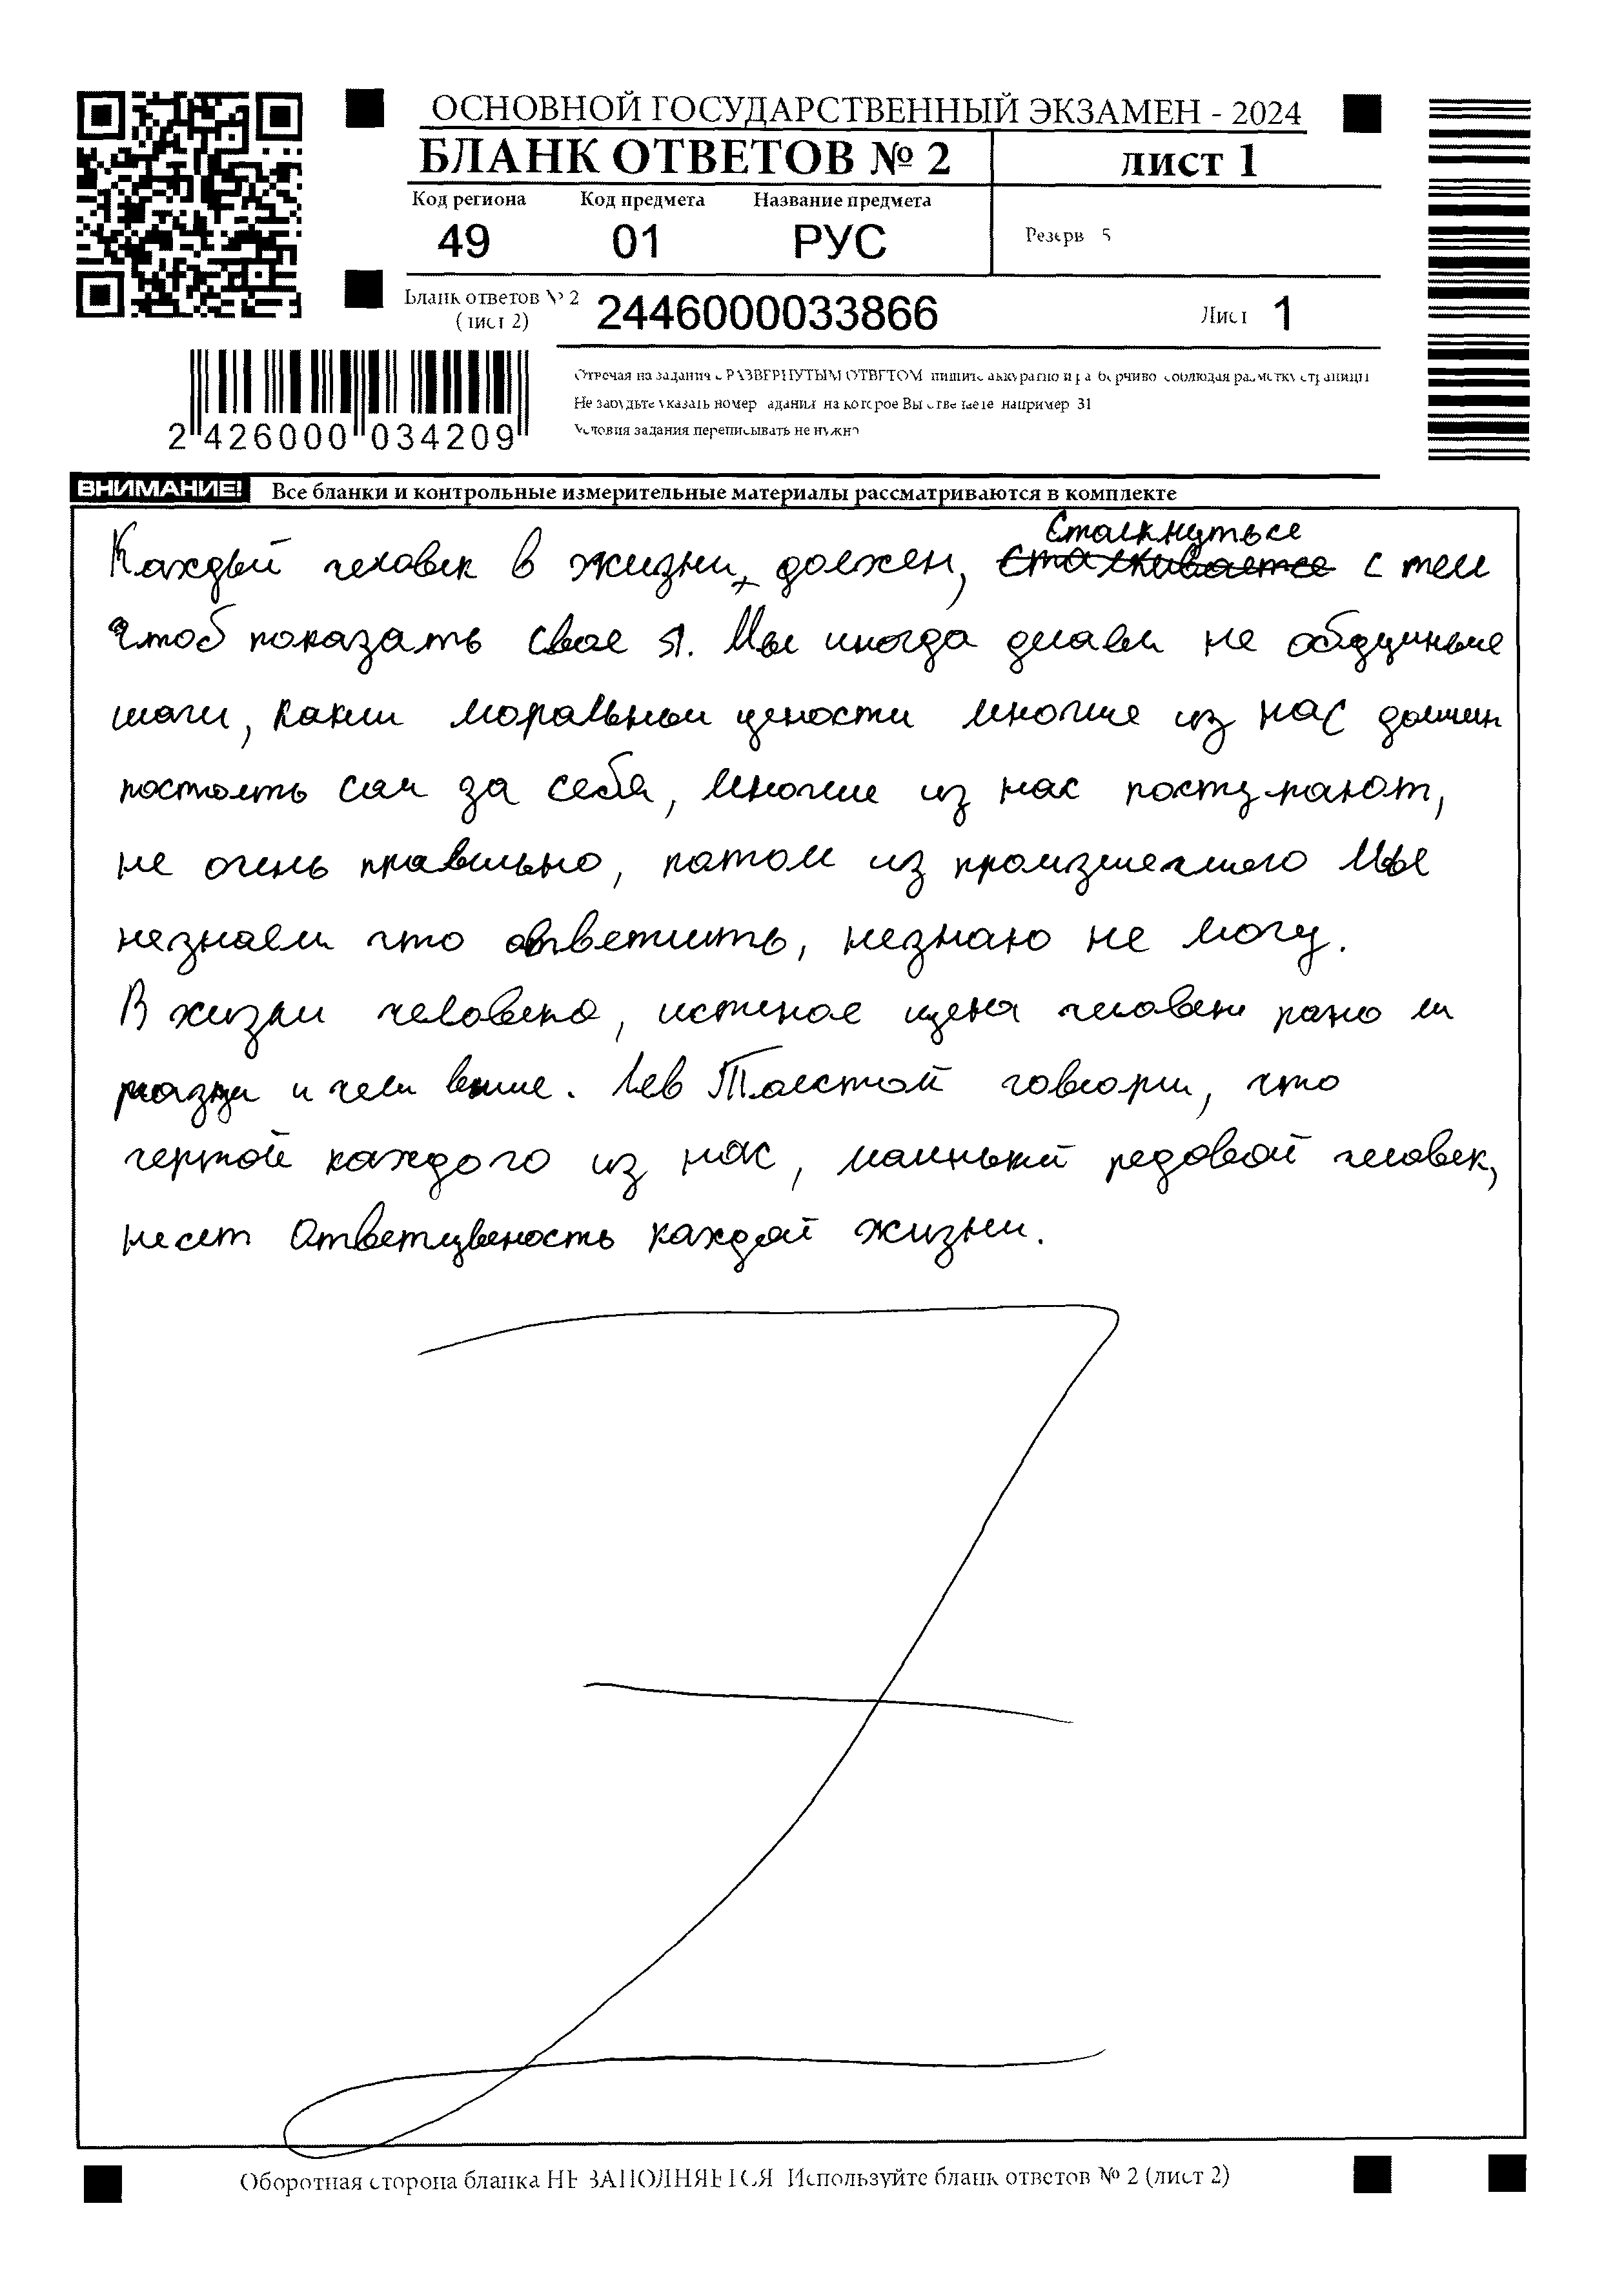 ОСНОВНОЙ ГОСУДАРСТВЕННЫЙ ЭКЗАМЕН - 2024
БЛАНК ОТВЕТОВ № 2
лист 1
Код региона Код предмета Название предмета
49 01 РУС
Резерв 5
Бланк ответов № 2 (лист 2) 2446000033866
Лист 1
Отвечая на задания с РАЗВЕРНУТЫМ ОТВЕТОМ пишите аккуратно и разборчиво соблюдая разметку страницы
Не забудьте указать номер задания на которое Вы отвечаете например 31
Условия задания переписывать не нужно
2 426000 034209
ВНИМАНИЕ! Все бланки и контрольные измерительные материалы рассматриваются в комплекте
Сталкнуться
Каждый человек в жизни, должен, сталкивается с тем
чтоб показать свое я. Мы иногда делаем не обдуманые
шаги, каким моральным цености многие из нас должен
постоять сам за себя, многие из нас поступают,
не очень правильно, патом из произшедшего мы
незнаем что ответить, незнаю не могу.
В жизни человека, истиное цена человека рано ли
и чем выше. Лев Толстой говорил, что
чертой каждого из нас, редовой человек,
несет каждой жизни.
Оборотная сторона бланка НЕ ЗАПОЛНЯЕТСЯ Используйте бланк ответов № 2 (лист 2)